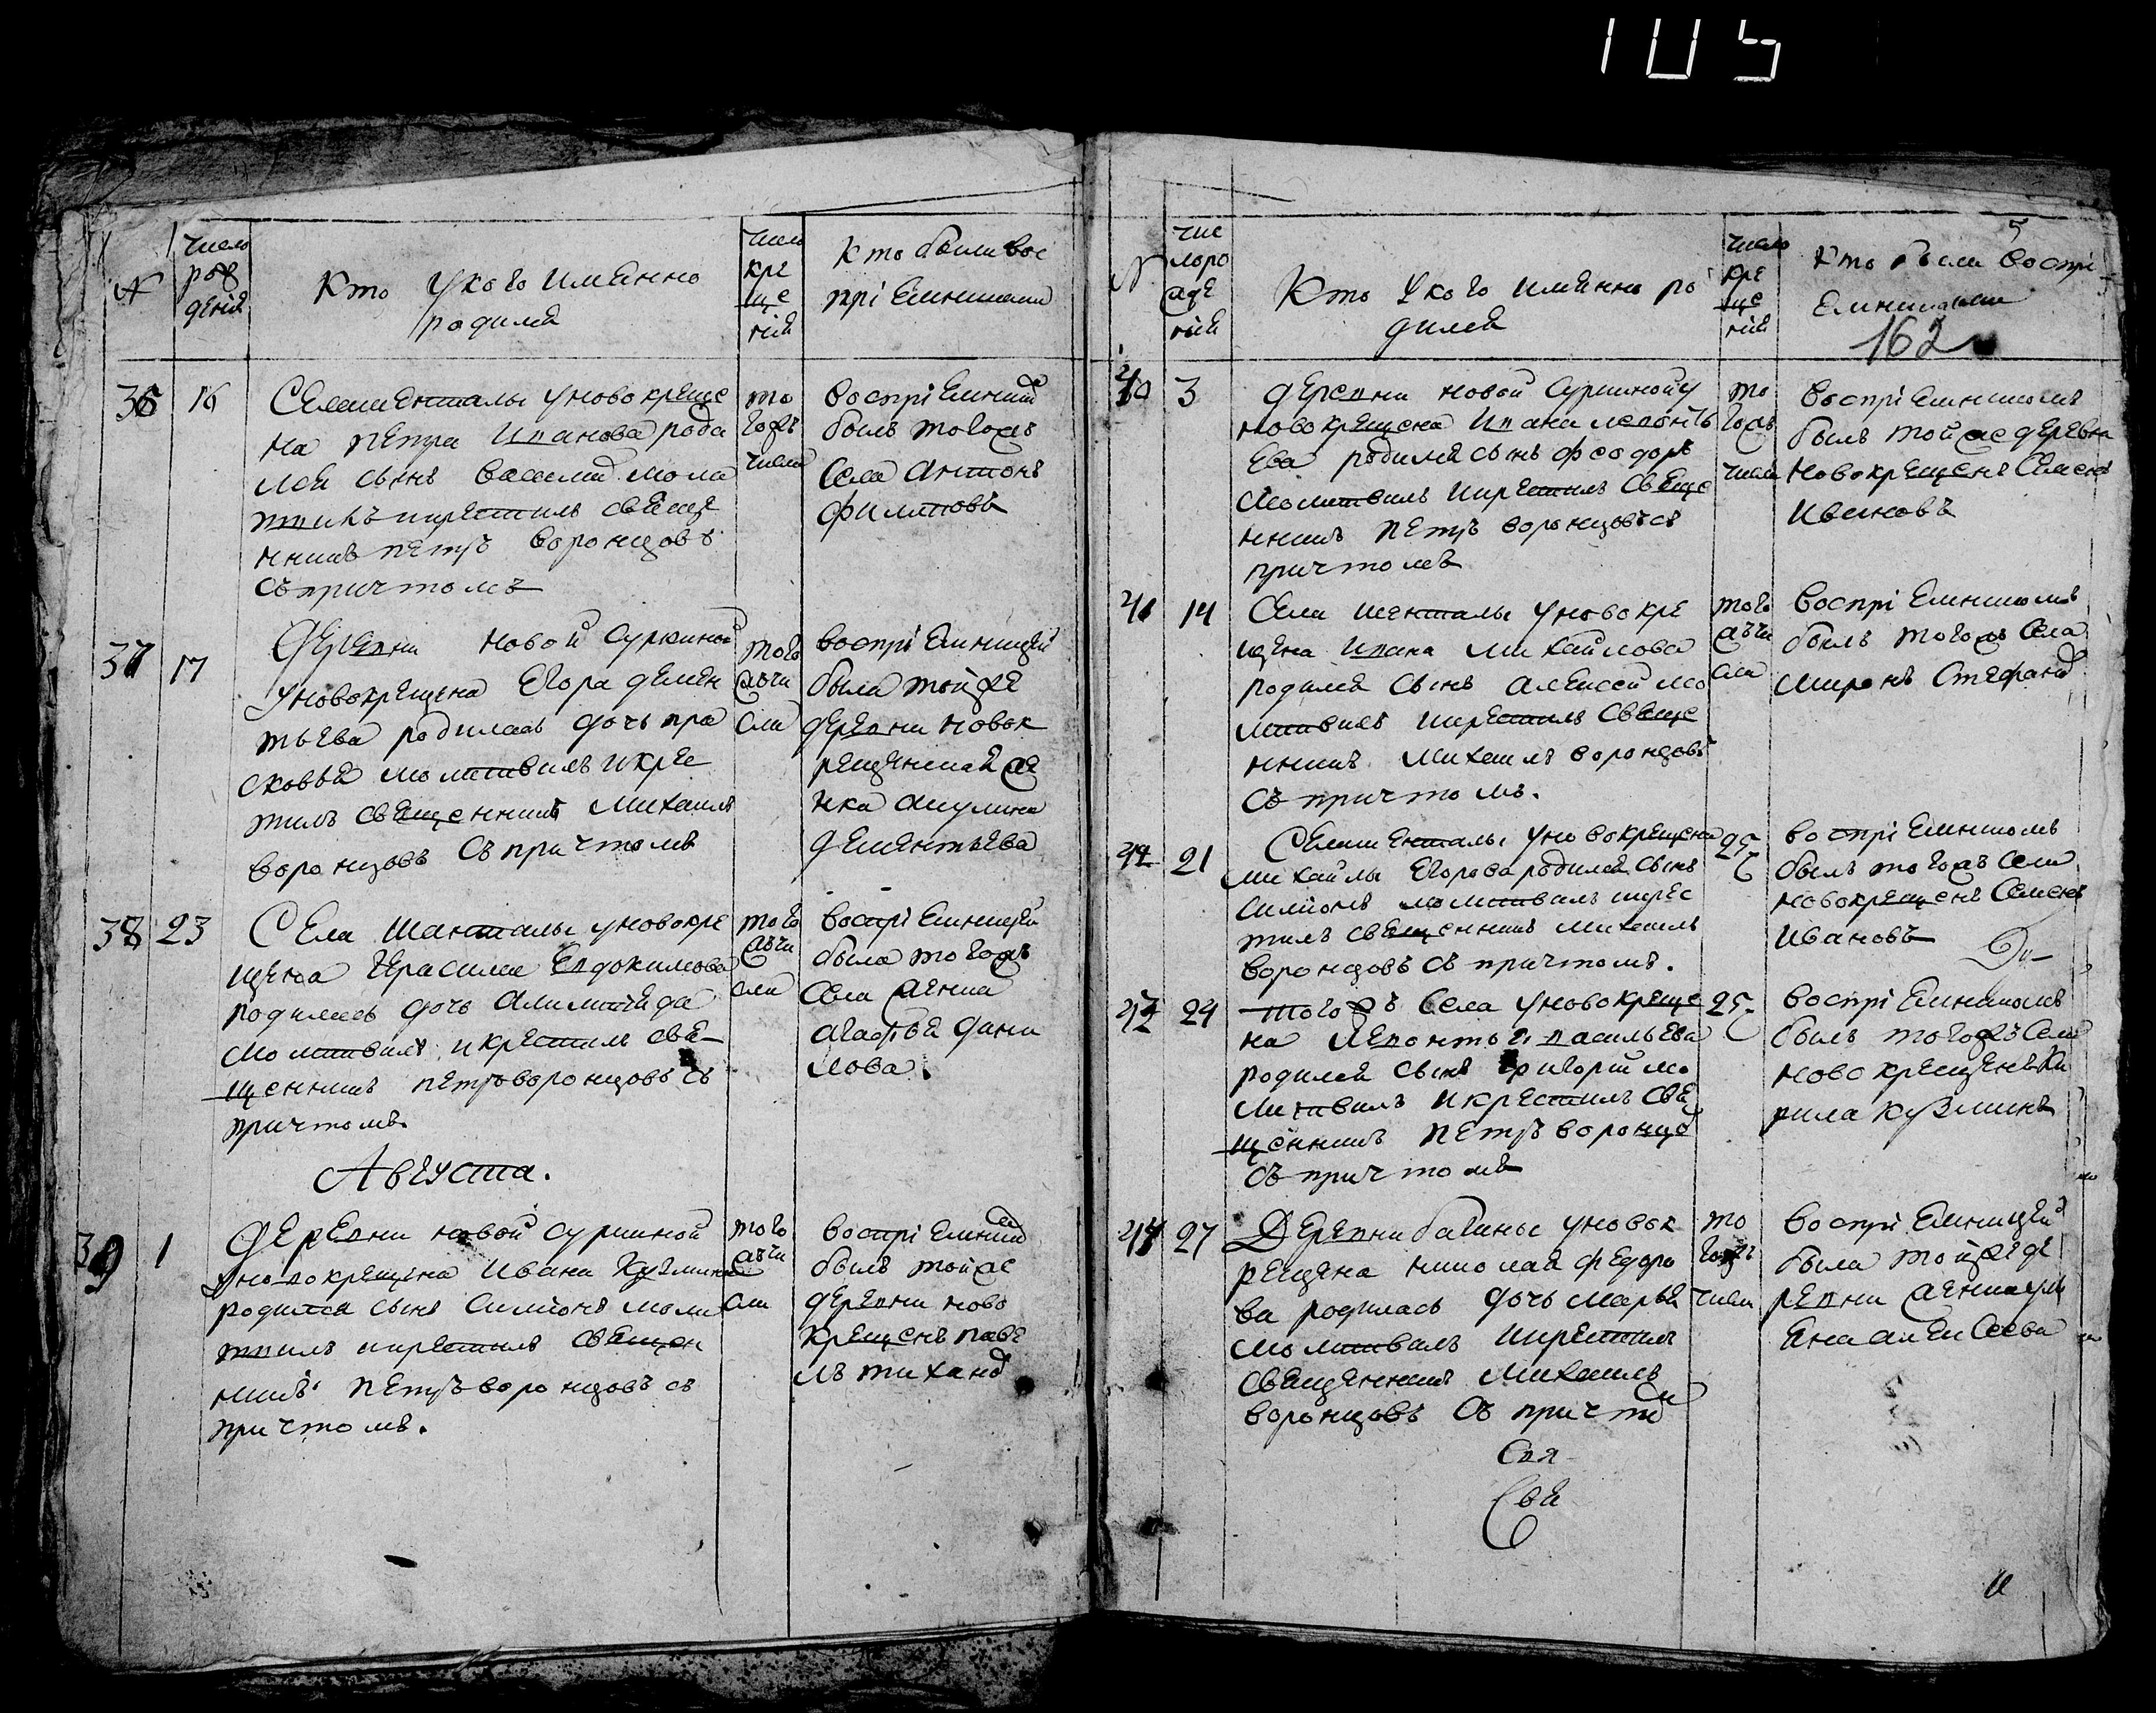 105
№
число
рож
дения
Кто Укого имянно
родился
число
кре
ще
ния
Кто были вос
приемники
36
16
Села шенталы уновокреще
на петра Иванова роди
лся сынъ василий моли
твилъ икрестилъ свяще
нникъ петръ воронцовъ
съ причтомъ
то
гожъ
числа
восприемник
былъ тогожъ
села антонъ
филиповъ
37
17
Деревни новой суркиной
уновокрещена Егора демен
тьева родилась дочь пра
сковья молитвилъ икрес
тилъ священникъ михаилъ
воронцовъ съ причтомъ
того
жъчи
сла
восприемницей
была тойже
деревни новок
рещенная же
нка акулина
дементьева
38
23
Села Шанталы уновокре
щена герасима Евдокимова
родилась дочь
молитвилъ и крестилъ свя
щенникъ петръ воронцовъ съ
причтомъ
того
жъчи
сла
восприемницей
была тогожъ
села женка
агафья дани
лова
Августа.
39
1
Деревни новой суркиной
уновокрещена Ивана Кузмина
родился сынъ симионъ моли
твилъ икрестилъ священ
никъ петръ воронцовъ съ
причтомъ.
того
жъчи
сла
восприемником
былъ тойже
деревни ново
крещенъ паве
лъ тиханов
№
чис
лоро
жде
ния
Кто Укого имянно ро
дился
число
кре
ще
ния
5
Кто были воспри
емники
162
40
3
деревни новой суркинойу
новокрещена Ивана леонть
ева родился сынъ феодоръ
молитвилъ икрестилъ свяще
нникъ петръ воронцовъ съ
причтомъ
то
гожъ
числа
восприемникомъ
былъ тойже деревни
новокрещенъ семенъ
ивановъ
41
14
Села шенталы уновокре
щена Ивана михайлова
родился сынъ алексей мо
литвилъ икрестилъ свяще
нникъ михаилъ воронцовъ
съ причтомъ.
того
жъчи
сла
восприемникомъ
былъ тогожъ села
миронъ стефанов
42
21
Села шенталы уновокрещена
михайлы Егорова родился сынъ
симионъ молитвилъ икрес
тилъ священникъ михаилъ
воронцовъ съ причтомъ.
25
восприемникомъ
былъ тогожъ села
новокрещенъ семенъ
ивановъ
43
24
тогожъ села уновокреще
на леонтья василъева
родился сынъ григорий мо
литвилъ икрестилъ свя
щенникъ петръ воронцов
съ причтомъ
25
восприемникомъ
былъ тогожъ села
новокрещенъ Ки
рила кузминъ
44
27
Деревни баганы уновок
рещена николая федоро
ва родилась дочь марья
молитвилъ икрестилъ
священникъ михаилъ
воронцовъ съ причтом
то
гожъ
числа
восприемницей
была тойжеде
ревни женкаули
яна алексеева
Свя